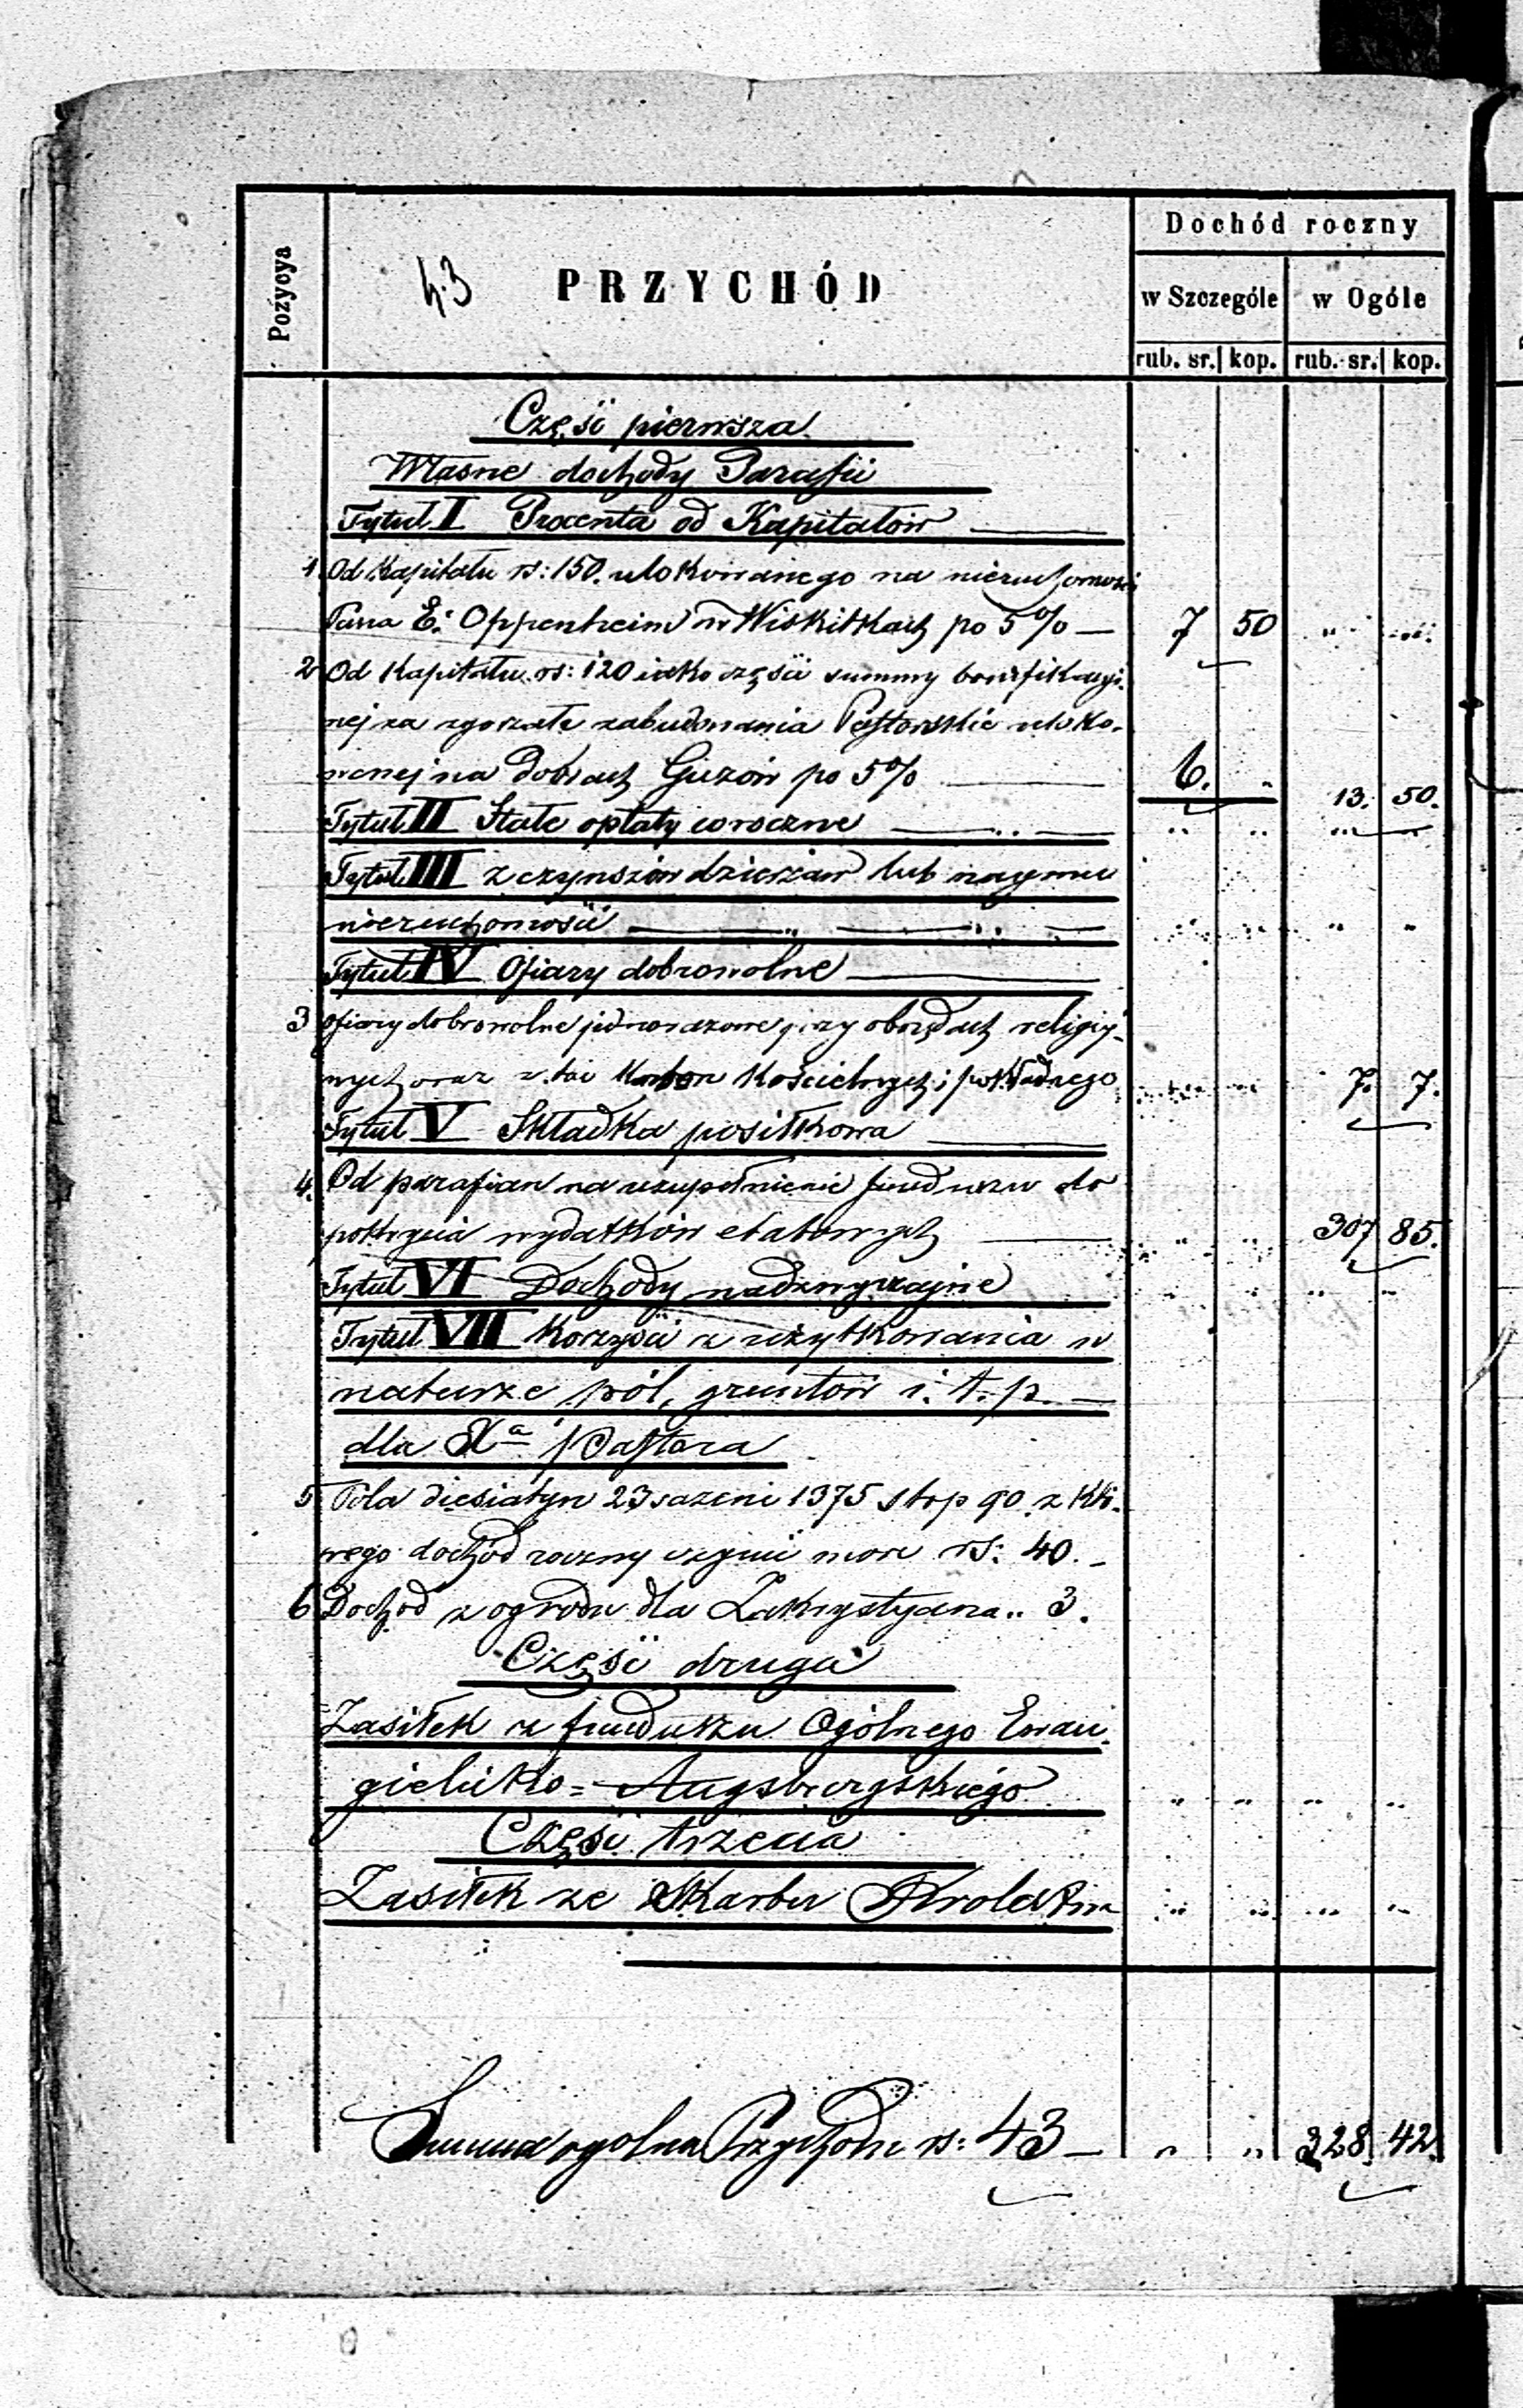 Pozycya
43 PRZYCHÓD
Dochód roczny
w Szczególe w Ogóle
rub. sr. kop. rub. sr. kop.
Część pierwsza
Własne dochody Parafii
Tytuł I Procenta od Kapitałów
1. Od Kapitału rs: 150. ulokowanego na nieruchomości
Pana E. Oppenheim w Wiskitkach po 5% — 7 50
2 Od Kapitału rs: 120 iako części summy bonifikacyi-
nej za zgorzałe zabudowania Pastorskie uloko-
wanej na Dobrach Guzów po 5% 6. 13. 50.
Tytuł II Stałe opłaty coroczne
Tytuł III z czynszów dzierżaw lub najmu
nieruchomości
Tytuł IV Ofiary dobrowolne
3 Ofiary dobrowolne jednorazowe przy obrzędach religij-
nych oraz Kościelnych i 7. 7.
Tytuł V Składka posiłkowa
4. Od parafian na uzupełnienie funduszu do
pokrycia wydatków etatowych 307 85.
Tytuł VI Dochody nadzwyczajne
Tytuł VII Korzyści z użytkowania w
naturze pól, gruntów i. t. p.
dla Xa Pastora
5 Pola diesiatyn 23 sazeni 1375 stop 90 z któ-
rego dochód roczny czynić może rs: 40. –
6 Dochod z ogrodu dla Zakrystyana .. 3.
Część druga
Zasiłek z funduszu Ogólnego Ewan-
gielicko = Augsburgskiego
Część trzecia
Zasiłek ze Skarbu Królestwa
Summa ogólna Przychodu rs: 43 – 328. 42.